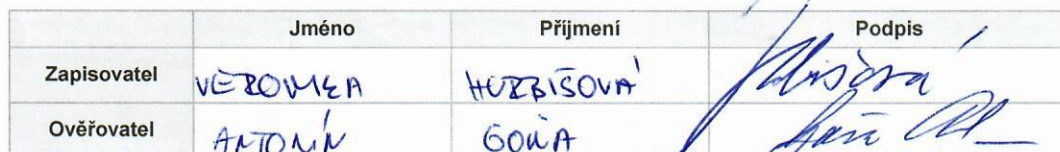 Jméno Příjmení Podpis
Zapisovatel VERONIKA HURBIŠOVÁ
Ověřovatel ANTONÍN